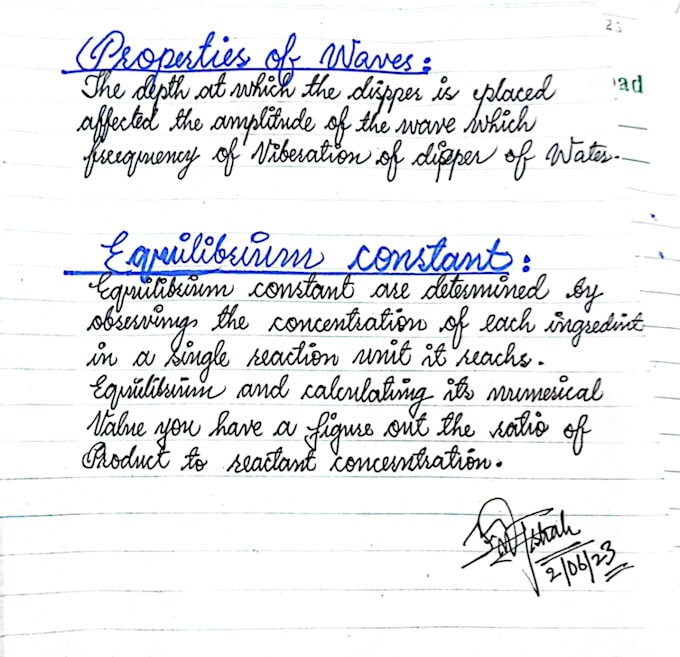 23
ad
Properties of Waves:
The depth at which the dipper is placed
affected the amplitude of the wave which
freequency of Viberation of dipper of Water.
Equilibrium constant:
Equilibrium constant are determined by
observings the concentration of each ingredint
in a single reaction unit it reachs.
Equilibrium and calculating its numerical
Value you have a figure out the ratio of
Product to reactant concerntration.
2/06/23